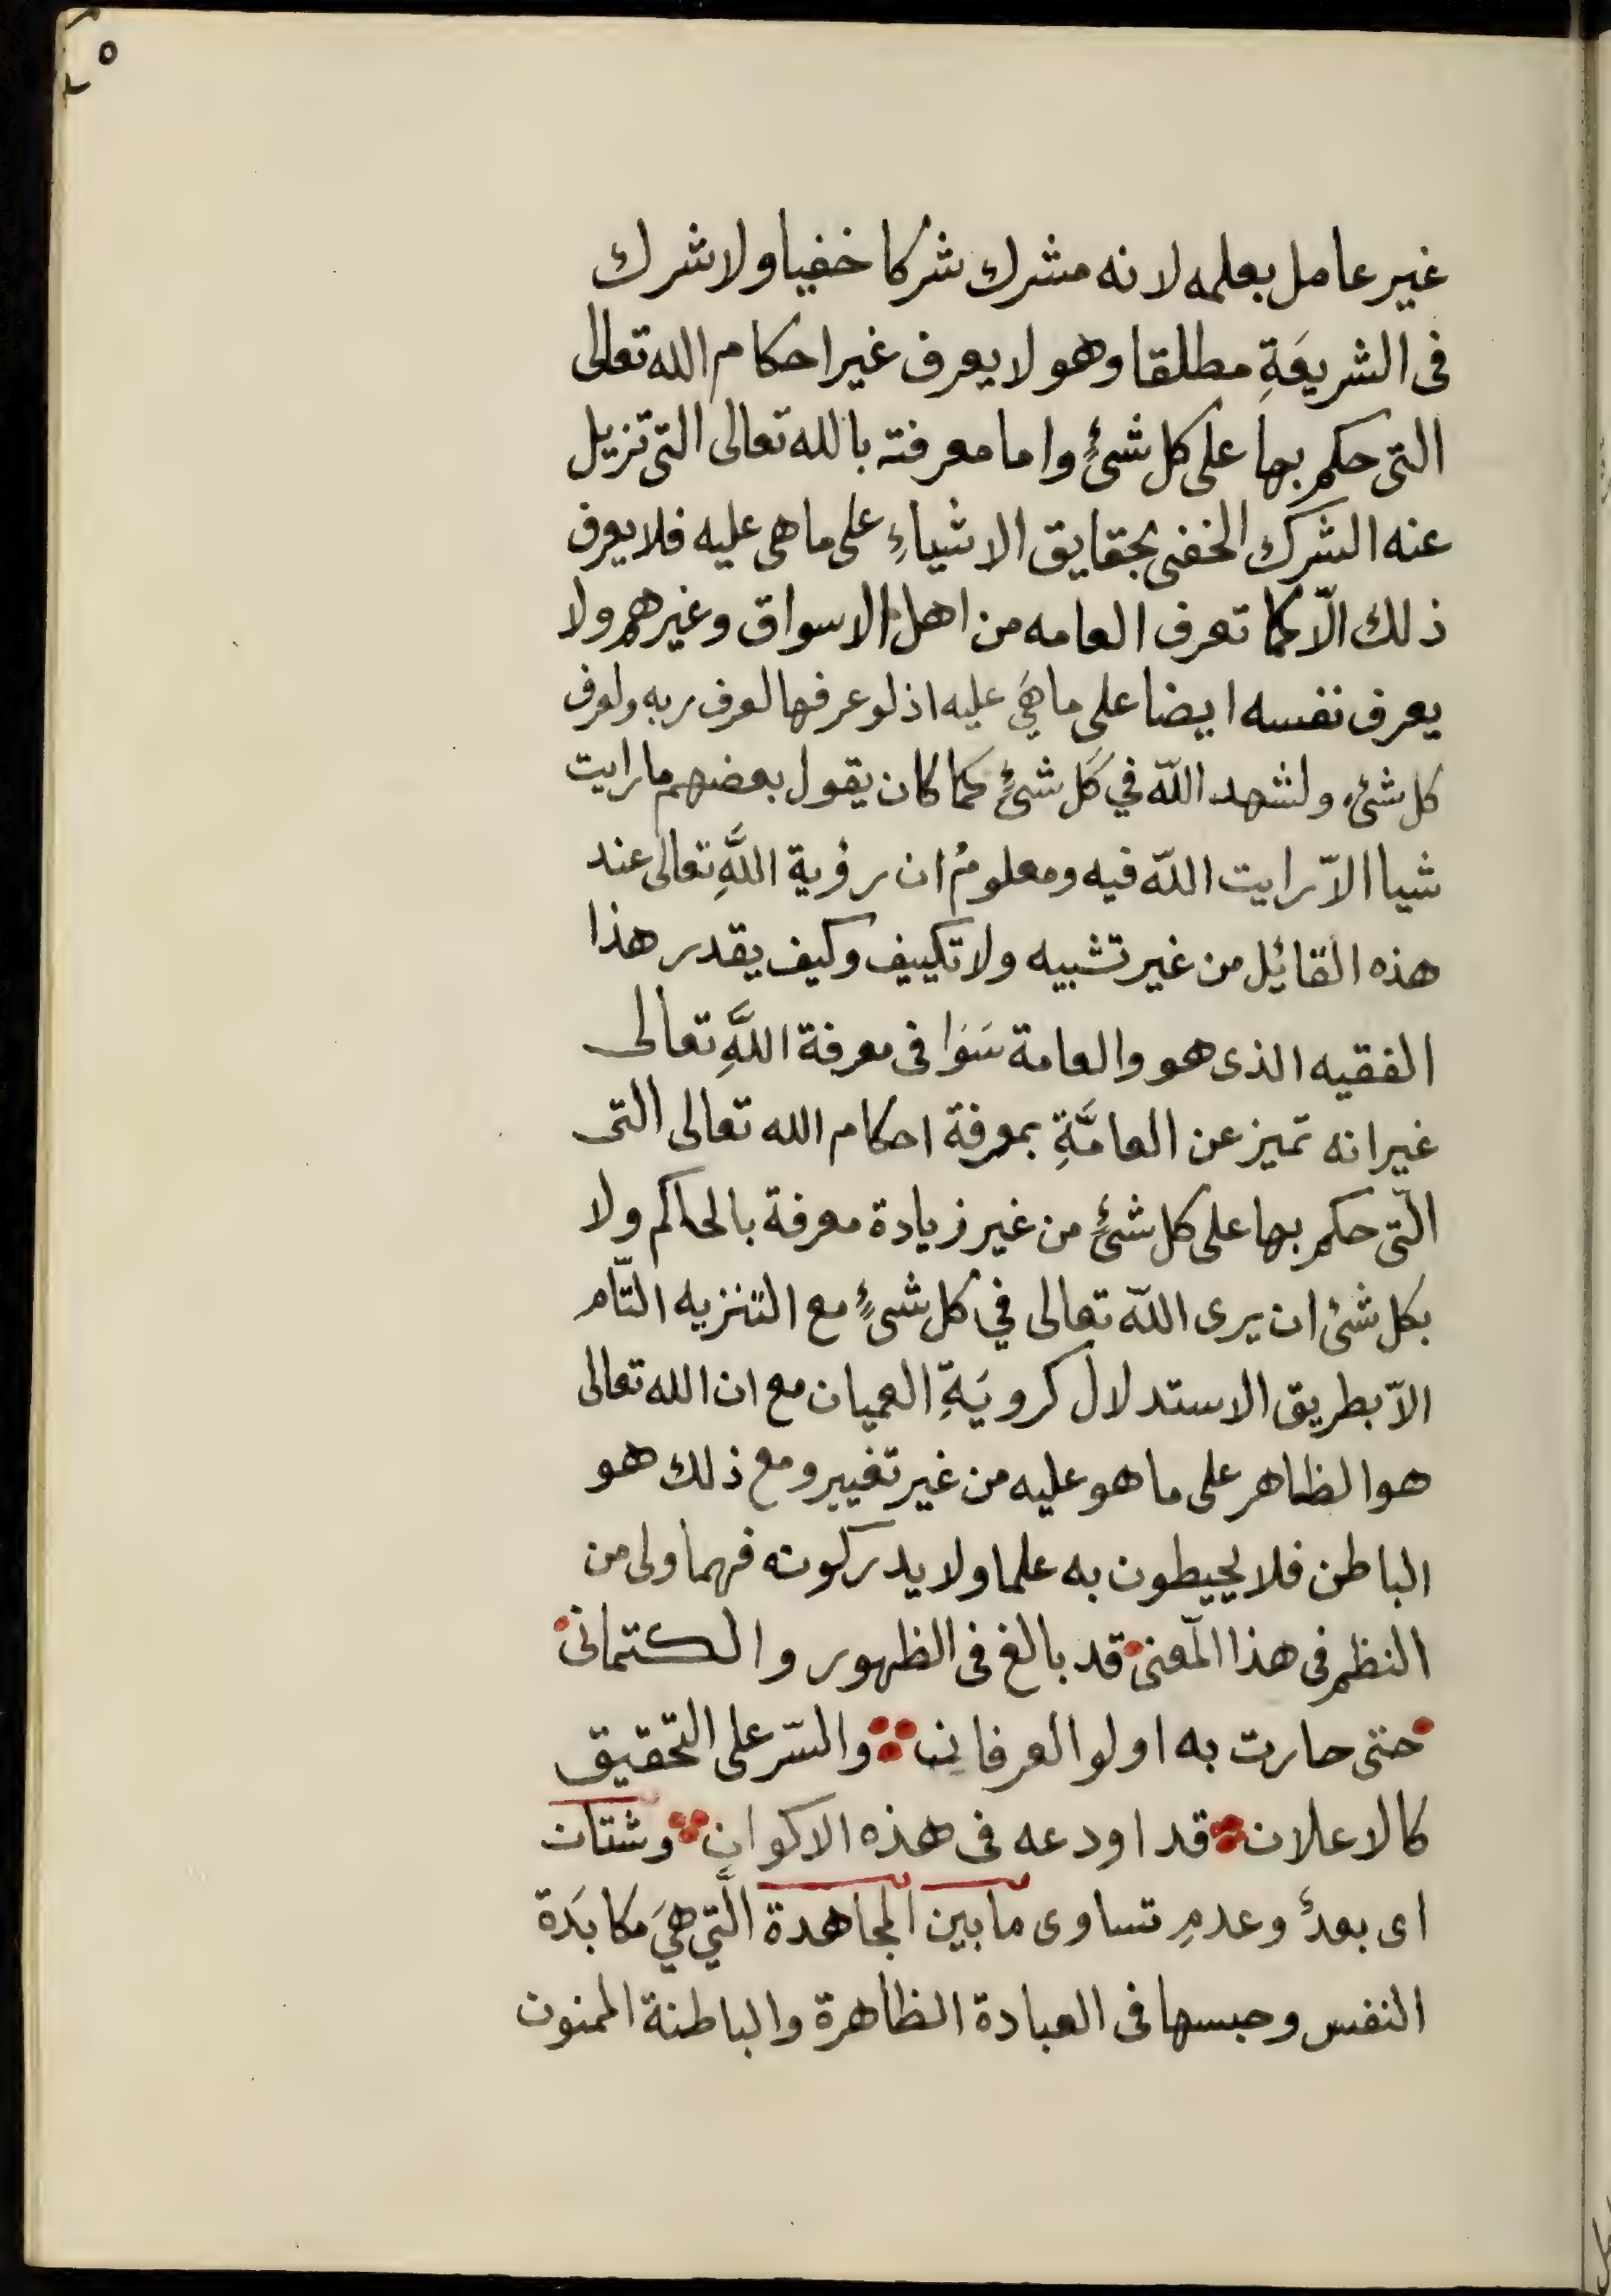 غير عامل بعلمه لانه مشرك شركا خفيا ولا شرك
فى الشريعَةِ مطلقا وهو لا يعرف غير احكام الله تعالى
التى حكم بها على كل شئٍ واما معرفته بالله تعالى التى تزيل
عنه الشرك الخفى بحقايق الاشياءِ على ما هى عليه فلا يعرف
ذلك الّا كما تعرف العامه من اهل الاسواق وغيرهم ولا
يعرف نفسه ايضا على ما هَي عليه اذ لو عرفها لعرف ربه ولعرف
كل شئ ولشهد اللّه في كَل شئٍ كما كان يقول بعضهم ما رايت
شيا الاّ رايت اللّه فيه ومعلومُ ان رؤية اللَّهِ تعالى عند
هذه القائِل من غير تشبيه ولا تكييف وكيف يقدر هذا
الفقيه الذى هو والعامة سَوَا فى معرفة اللَّهِ تعالى
غير انه تميز عن العامَّةِ بمعرفة احكام الله تعالى التى
الّتى حكم بها على كل شئٍ من غير زيادة معرفة بالحاكم ولا
بكل شئ ان يرى اللّه تعالى في كل شئٍ مع التنزيه التّام
الاّ بطريق الاستدلال كرويَةِ العميان مع ان الله تعالى
هو الظاهر على ما هو عليه من غير تغيير ومع ذلك هو
الباطن فلا يحيطون به علما ولا يدركونه فهما ولى من
النظم فى هذا المّعنى قد بالغ فى الظهور والكتمانى
حتى حارت به اولو العرفانِ والسّر على التحقيق
كالاعلان قد اودعه فى هذه الاكوانِ وشتان
اى بعدٌ وعدمِ تساوى ما بين المجاهدة الَّتي هيَ مكابَدة
النفس وحبسها فى العبادة الظاهرة والباطنة الممنون